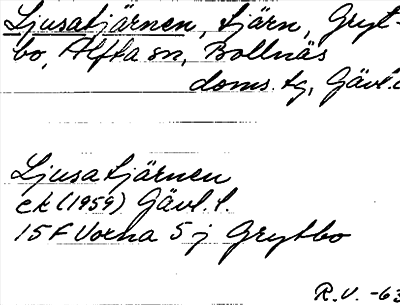 Ljusatjärnen, tjärn, Gryt-
bo, Alfta sn, Bollnäs
doms. tg, Gävl. l
Ljusatjärnen
ek (1959) Gävl. l.
15F Voxna 5j Grytbo
R.V. -63